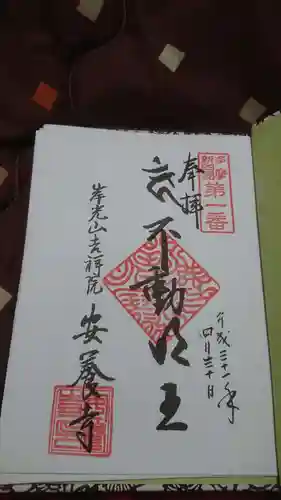 第一番
奉拝
平成三十一年
四月三十日
不動明王
岸光山吉祥院
安養寺